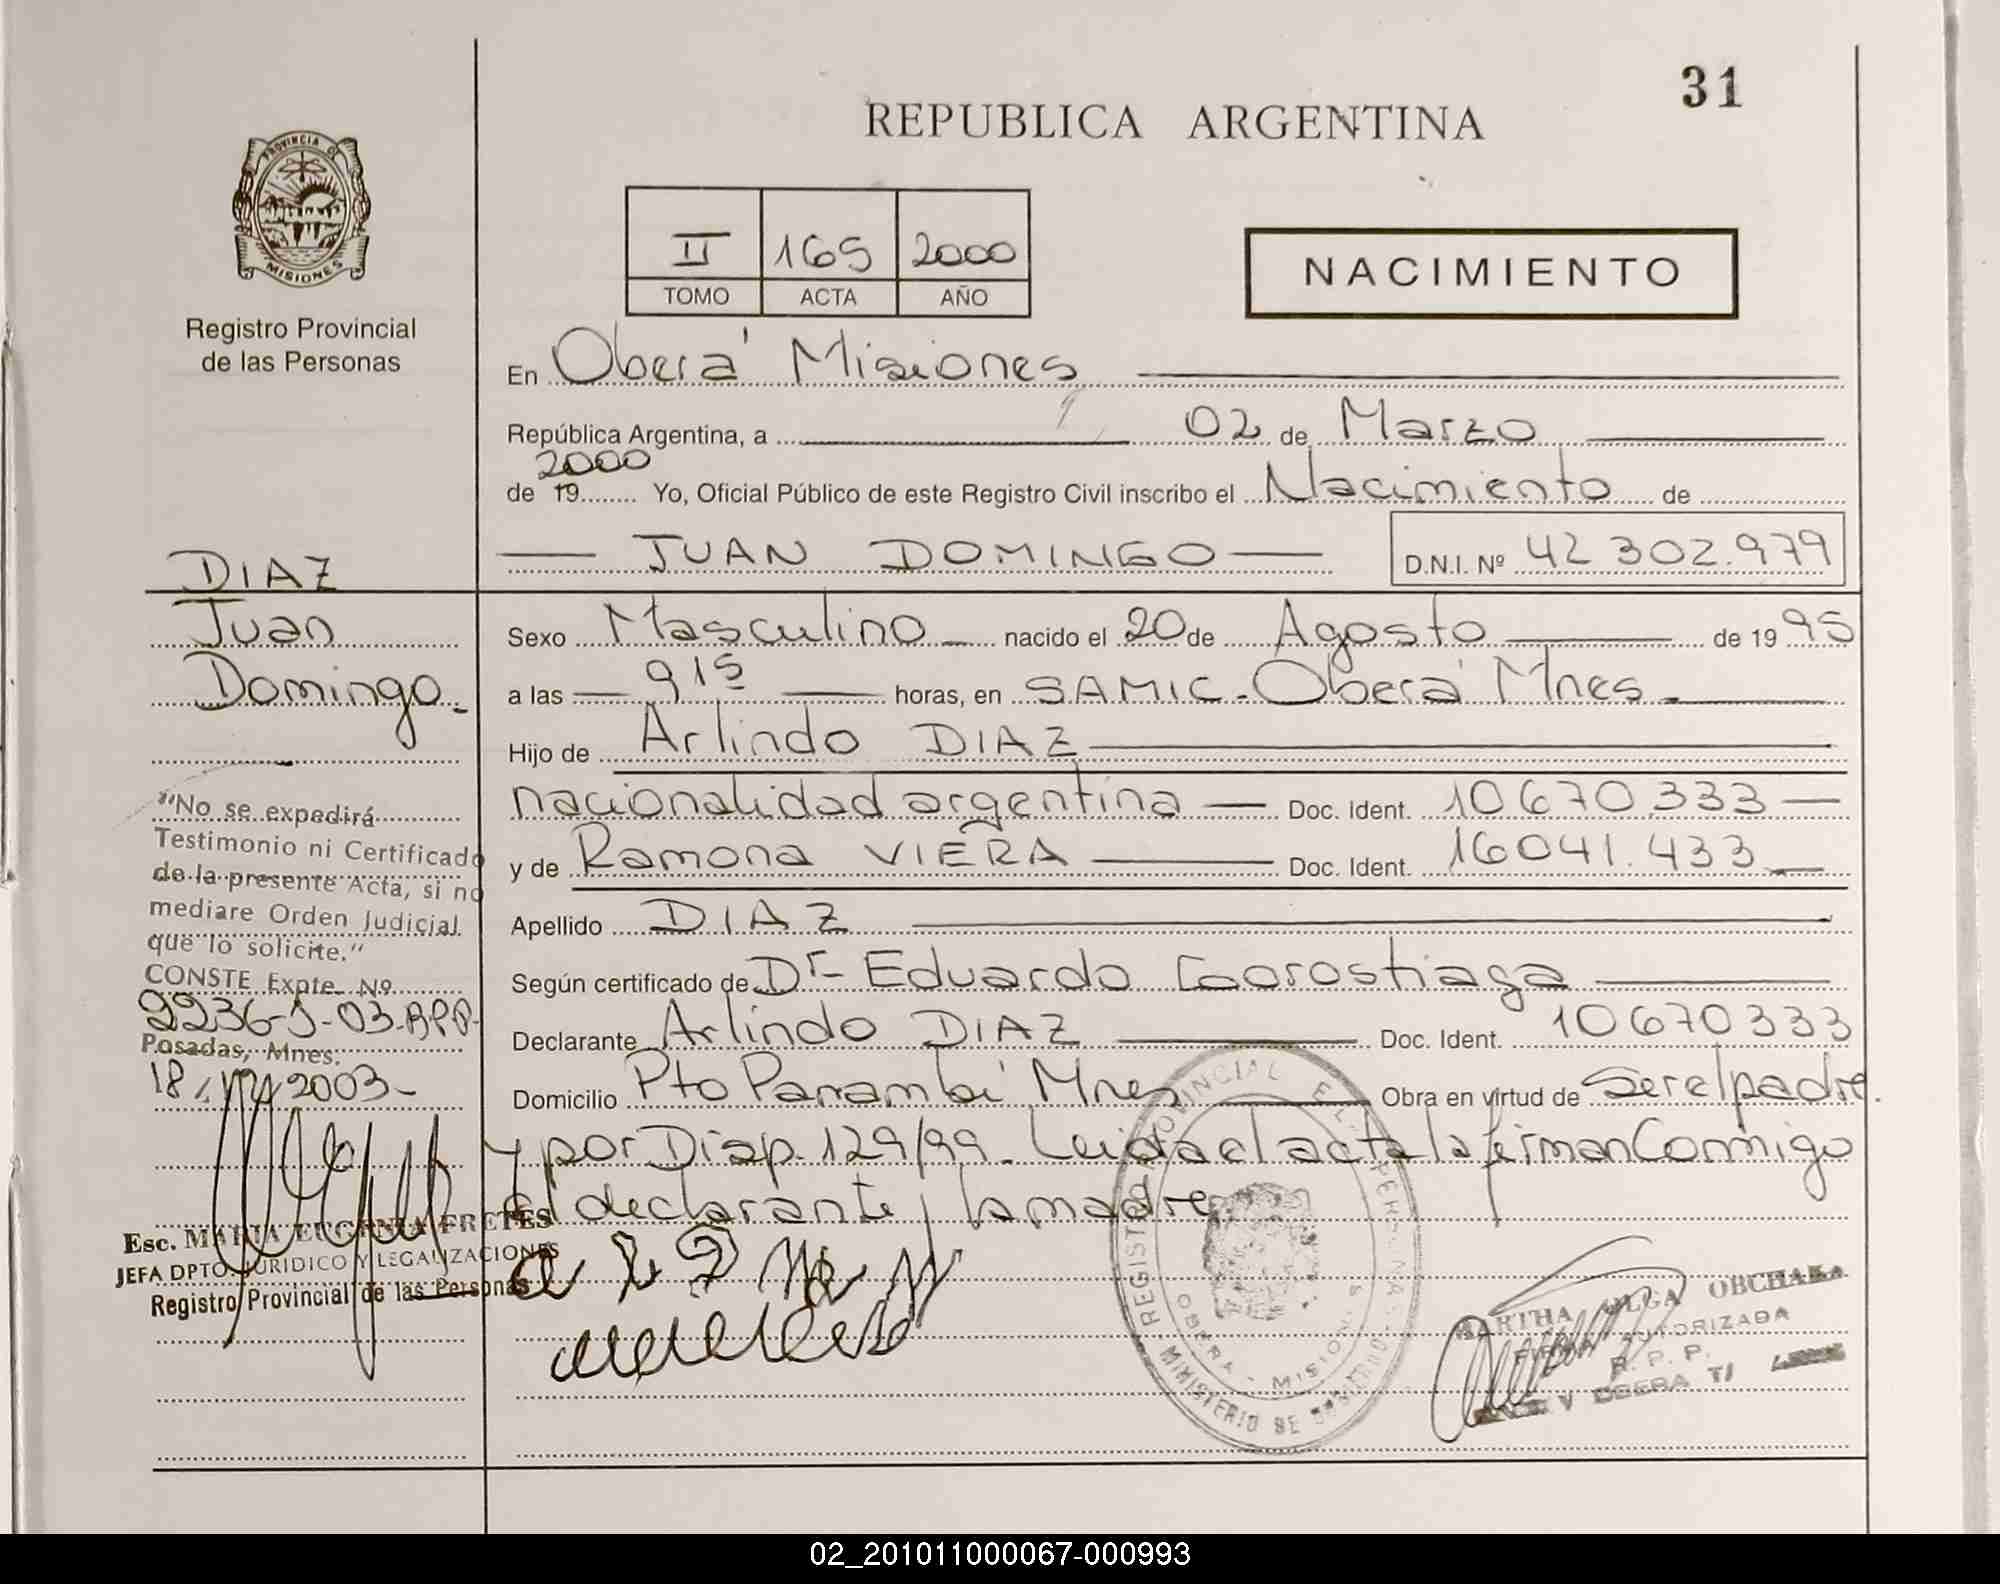 31
REPUBLICA ARGENTINA
PROVINCIA DE
MISIONES
Registro Provincial
de las Personas
II 165 2000
TOMO ACTA AÑO
NACIMIENTO
En Oberá Misiones
República Argentina, a 02 de Marzo
2000
de 19 Yo, Oficial Público de este Registro Civil inscribo el Nacimiento de
JUAN DOMINGO D.N.I. Nº 42 302.979
DIAZ
Juan
Domingo.
Sexo Masculino nacido el 20 de Agosto de 1995
a las 915 horas, en SAMIC-Oberá Mnes.
Hijo de Arlindo DIAZ
nacionalidad argentina Doc. Ident. 10670.333
y de Ramona VIERA Doc. Ident. 16041.433
Apellido DIAZ
Según certificado de Dr- Eduardo Gorostiaga
Declarante Arlindo DIAZ Doc. Ident. 10670333
Domicilio Pto Panambí Mnes Obra en virtud de Ser el padre.
y por Disp. 129/99. Leida el acta la firman Conmigo
el declarante y la madre
"No se expedirá
Testimonio ni Certificado
de la presente Acta, si no
mediare Orden Judicial
que lo solicite."
CONSTE Expte. Nº
2236-J-03-RPP-
Posadas, Mnes:
18 2003-
Esc. MARIA EUGENIA FRETES
JEFA DPTO. JURIDICO Y LEGALIZACIONES
Registro Provincial de las Personas
REGISTRO PROVINCIAL DE
OBERA - MISIONES
MINISTERIO DE
MARTHA OLGA OBCHAKA
FIRMA AUTORIZADA
R. P. P.
OBERA
02_201011000067-000993